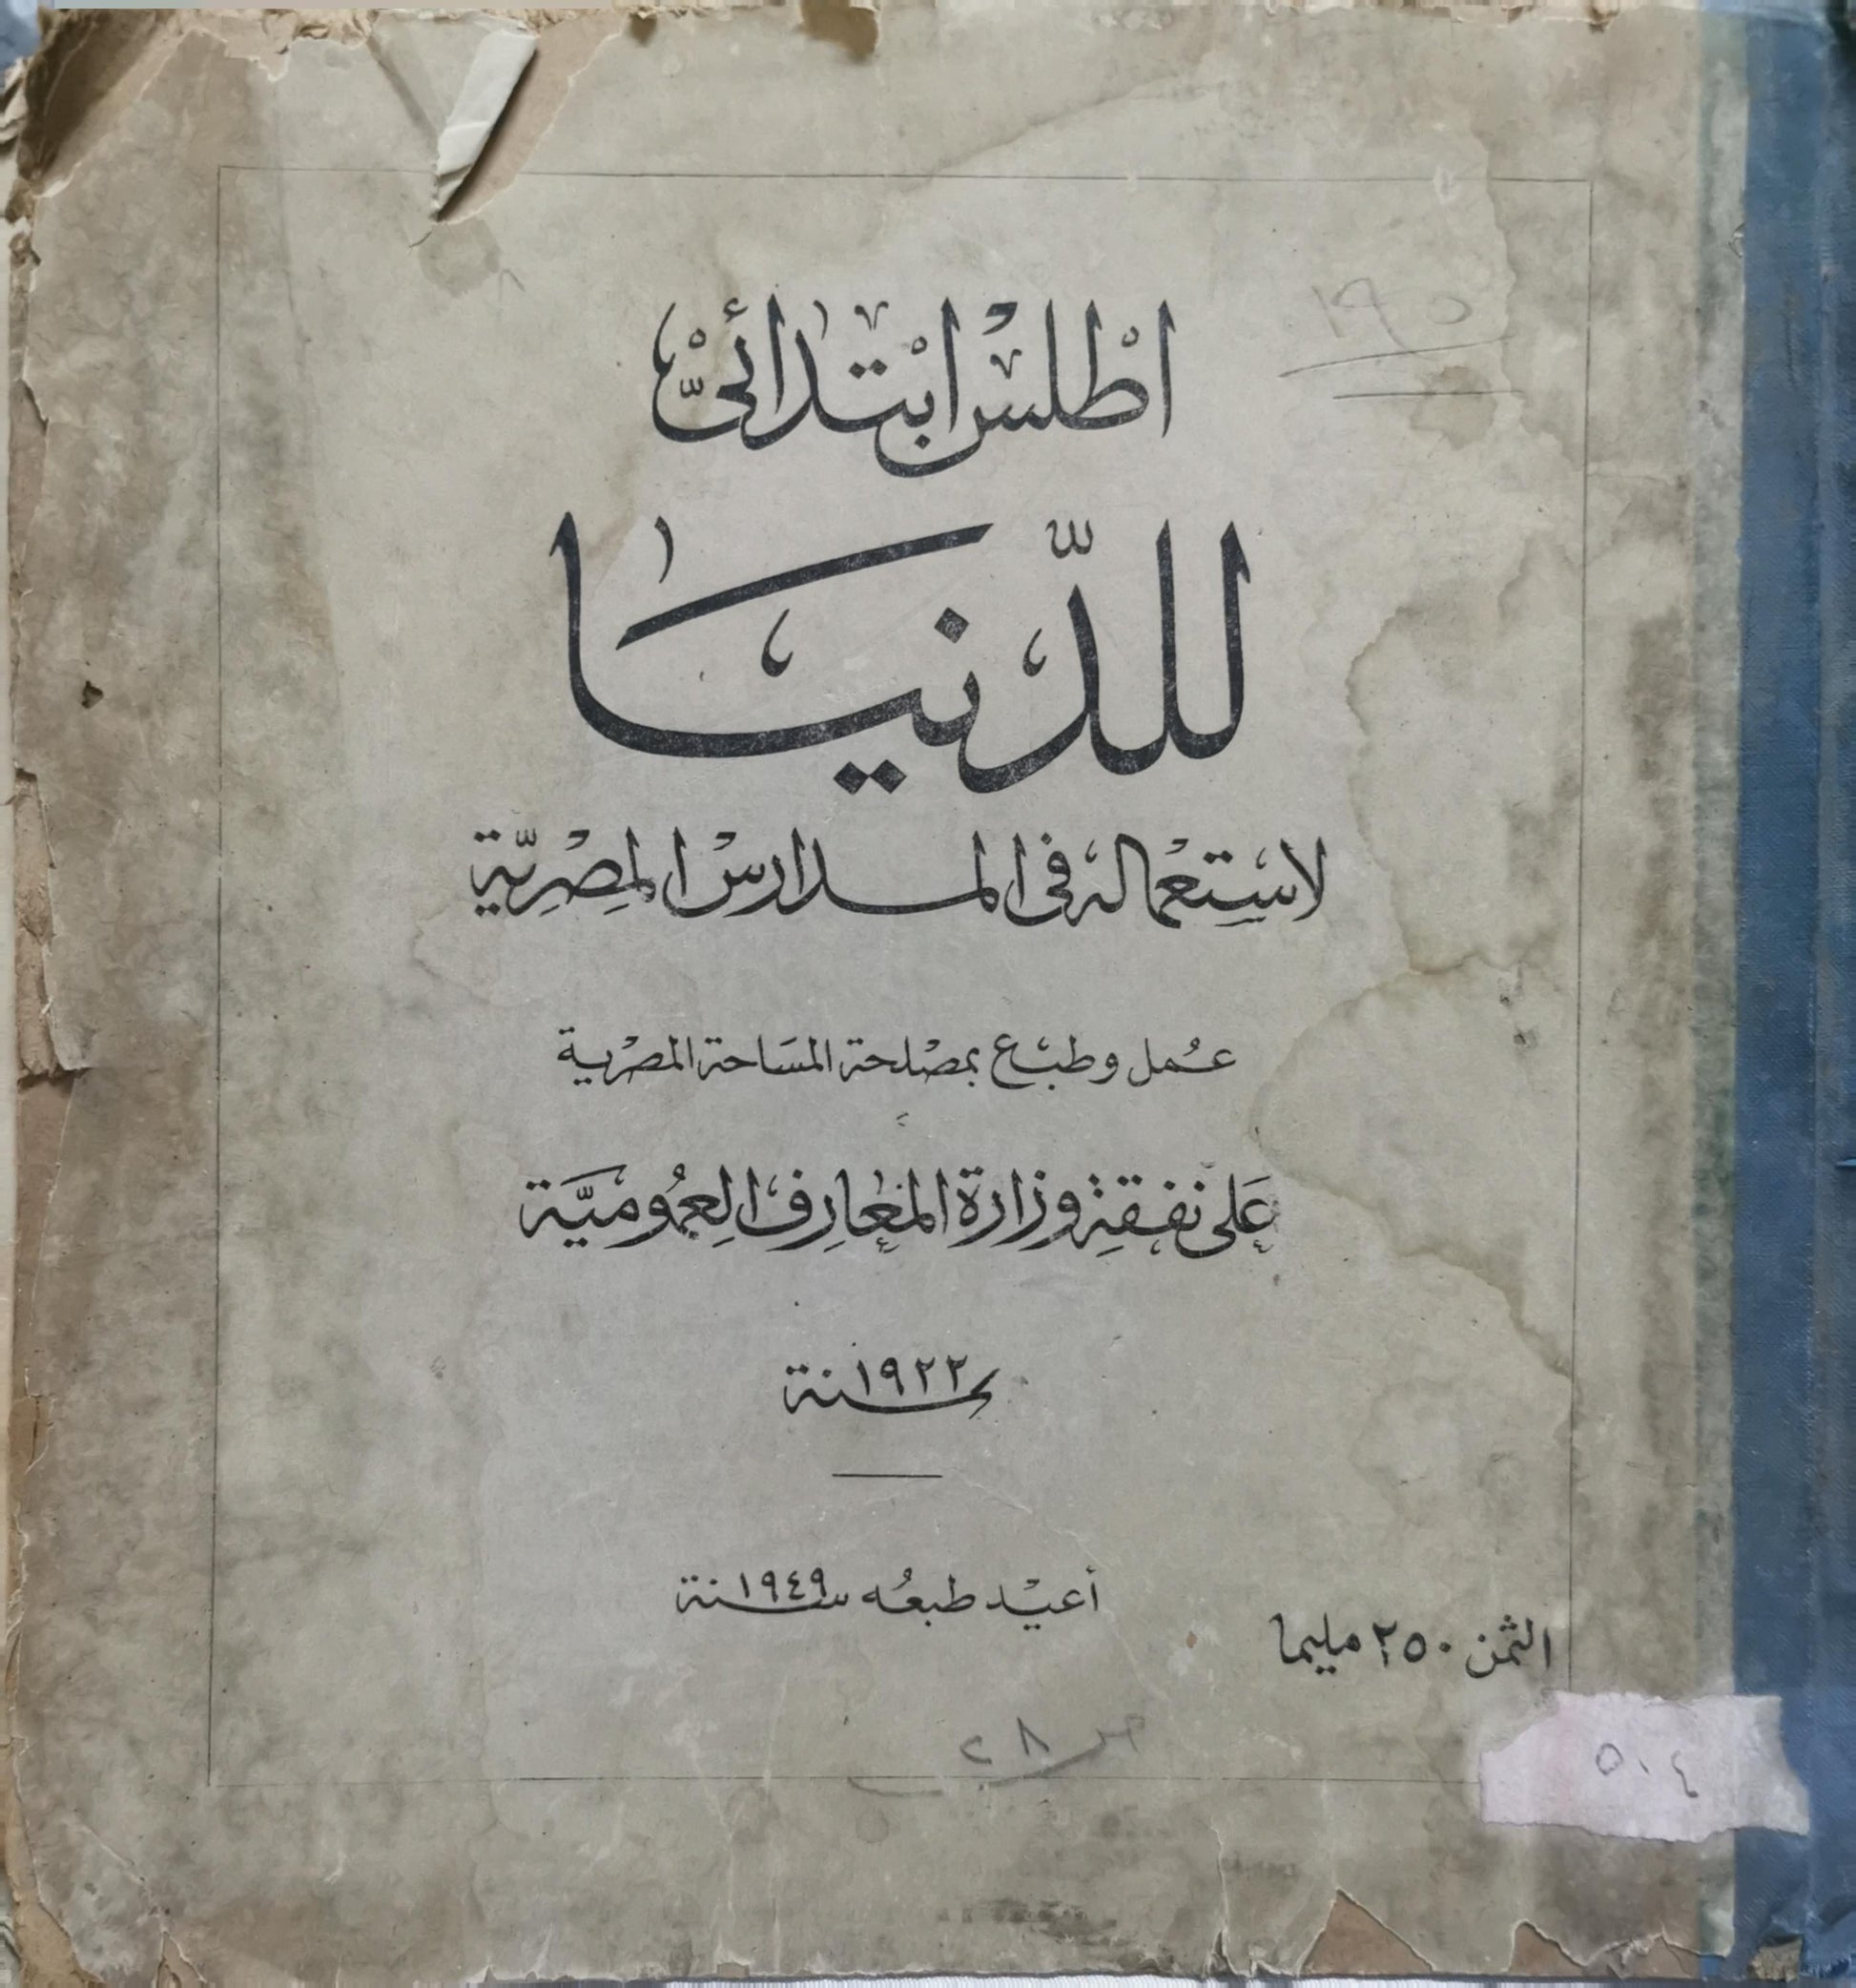 اطلس ابتدائى
للدنيا
لاستعماله فى المدارس المصرية
عمل وطبع بمصلحة المساحة المصرية
على نفقة وزارة المعارف العمومية
سنة ١٩٢٢
أعيد طبعه سنة ١٩٤٩
الثمن ٢٥٠ مليما
٥٠٤